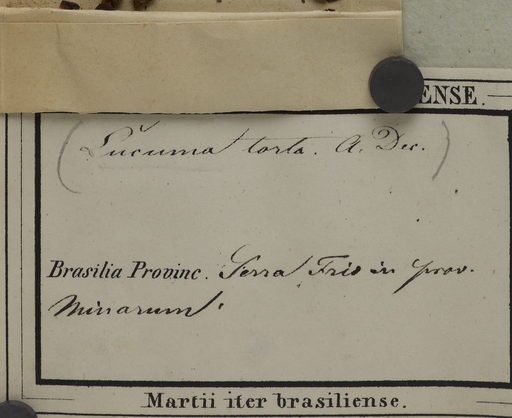 ENSE.
(Lucuma torta. A. Dec.)
Brasilia Provinc. Serra Frio in prov.
Minarum.
Martii iter brasiliense.